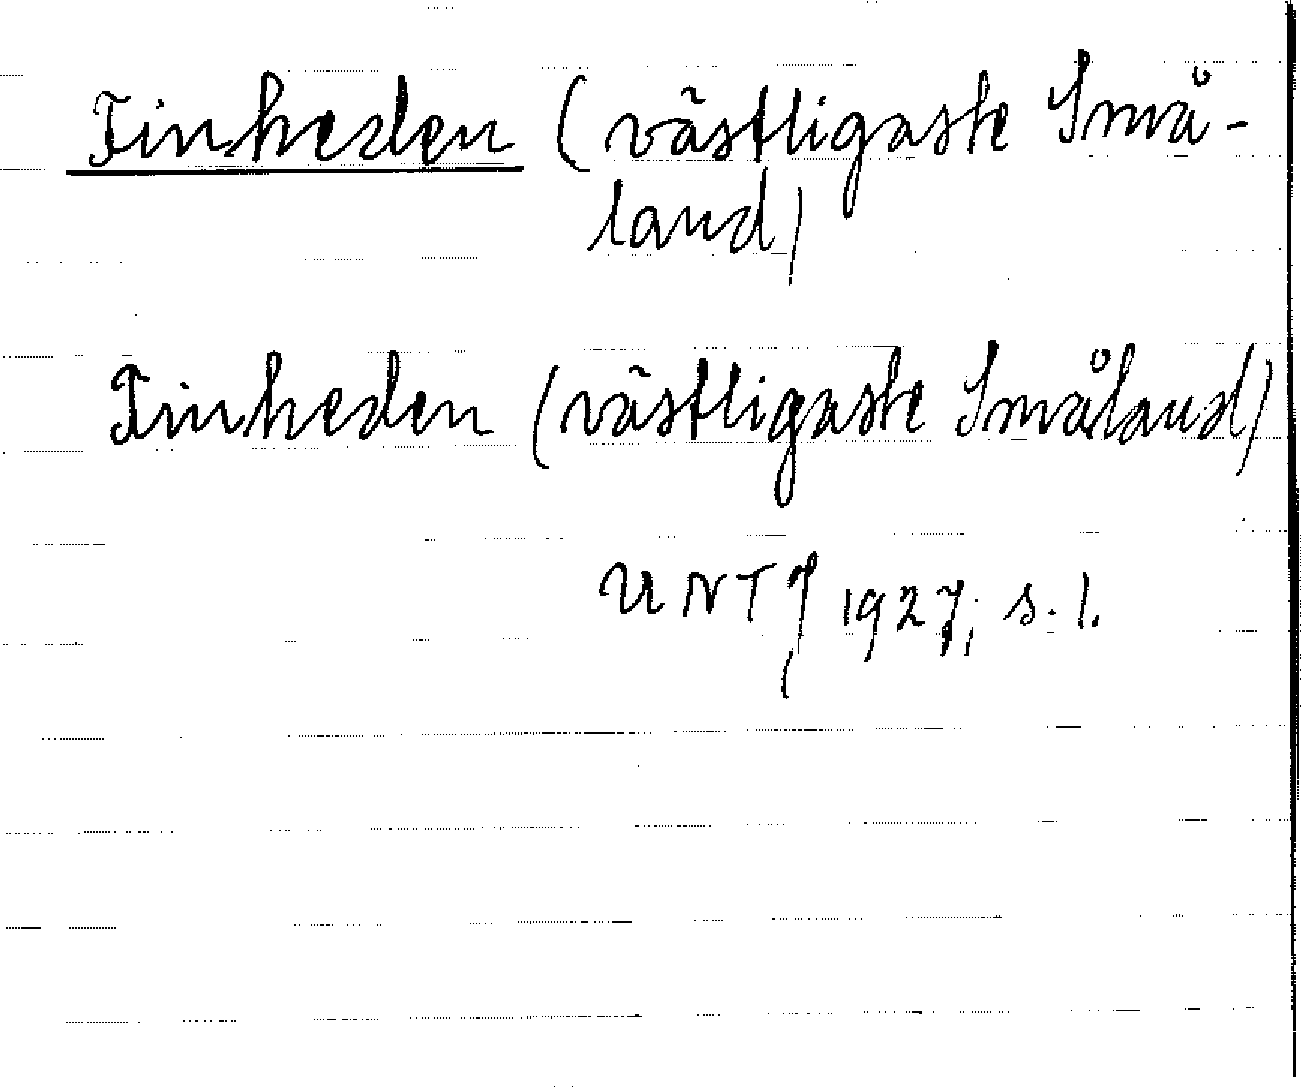 Finheden (västligaste Små-
land)
Finheden (västligaste Småland)
UNT J 1927, s. 1.